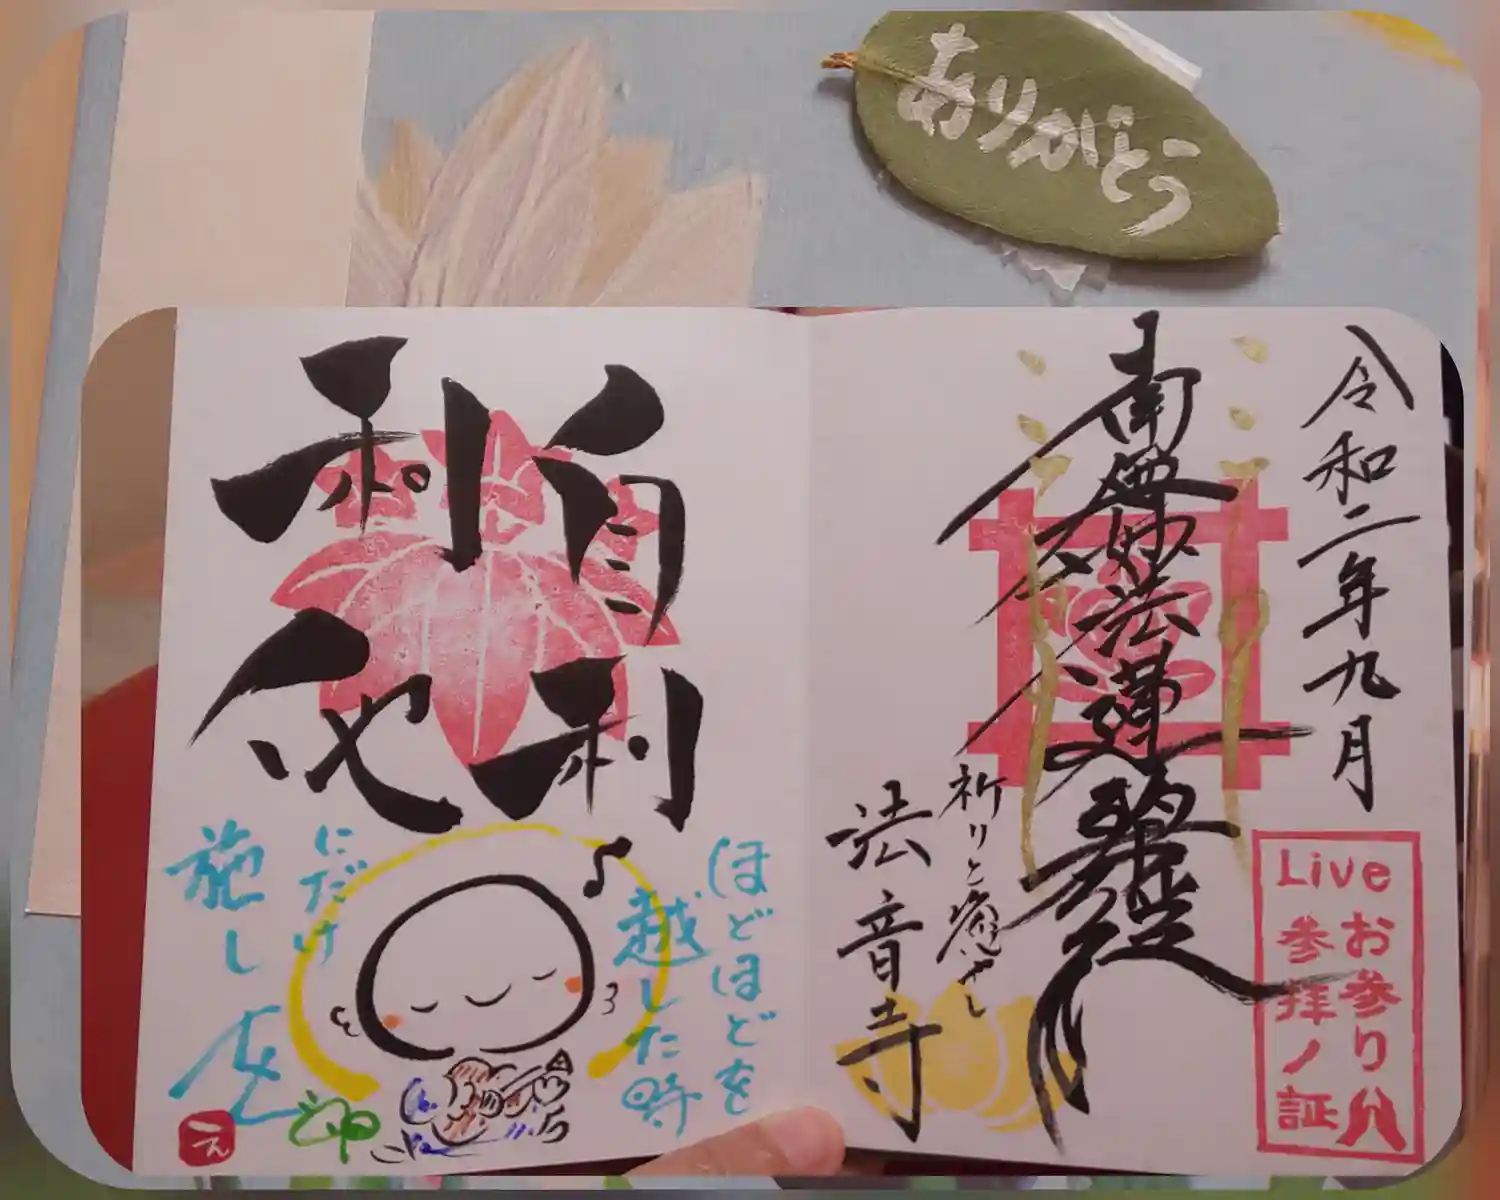 ありがとう
令和二年九月
南無妙法蓮華経
祈りと癒やし
法音寺
Live
お参り
参拝ノ証
自利
利他
ほどほどを
越した時
にだけ
施し
え